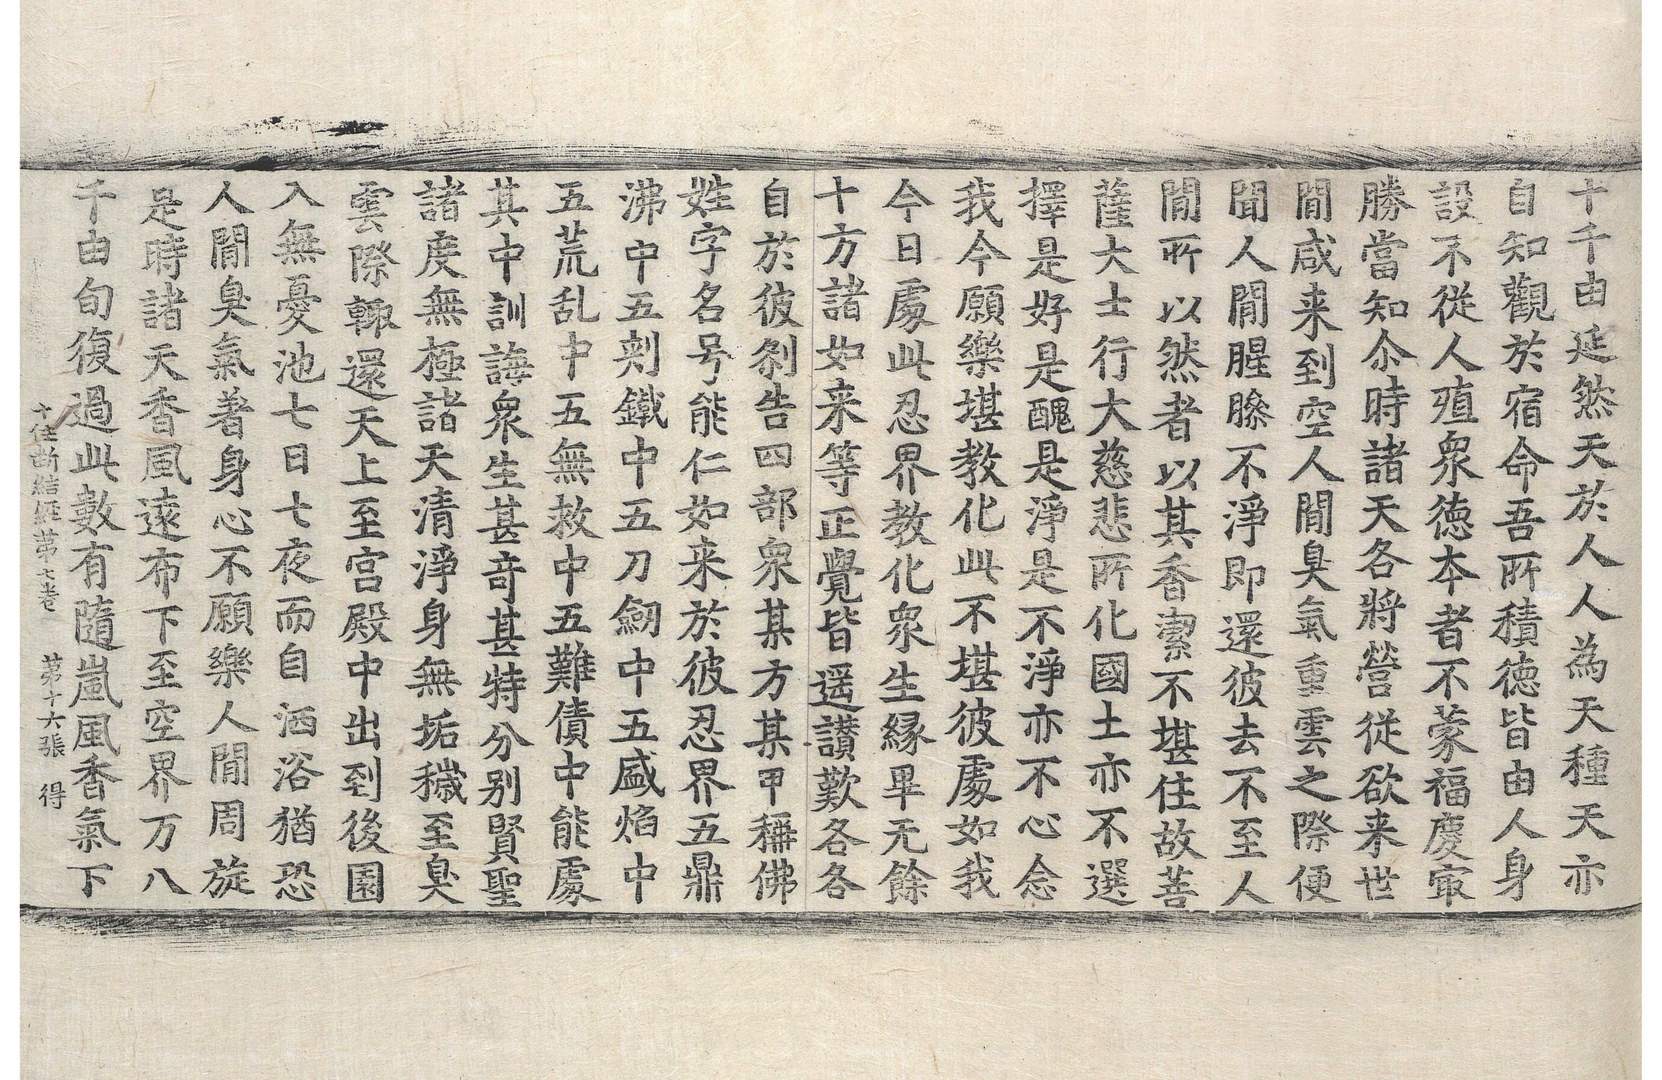 十千由延然天於人人為天種天亦
自知觀於宿命吾所積徳皆由人身
設不從人殖衆徳本者不蒙福慶㝡
勝當知尒時諸天各將營從欲来世
間咸来到空人間臭氣重雲之際便
聞人間腥臊不淨即還彼去不至人
間所以然者以其香潔不堪住故菩
薩大士行大慈悲所化國土亦不選
擇是好是醜是淨是不淨亦不心念
我今願樂堪教化此不堪彼處如我
今日處此忍界教化衆生緣畢无餘
十方諸如来等正覺皆遥讃歎各各
自於彼剎告四部衆某方某甲稱佛
姓字名号能仁如来於彼忍界五鼎
沸中五剌鐵中五刀劒中五盛焰中
五荒乱中五無救中五難債中能處
其中訓誨衆生甚奇甚特分別賢聖
諸度無極諸天清淨身無垢穢至臭
雲際輙還天上至宮殿中出到後園
入無憂池七日七夜而自洒浴猶恐
人間臭氣著身心不願樂人間周旋
是時諸天香風遠布下至空界万八
千由旬復過此數有隨嵐風香氣下
十住断結經苐七卷　苐十六張　得